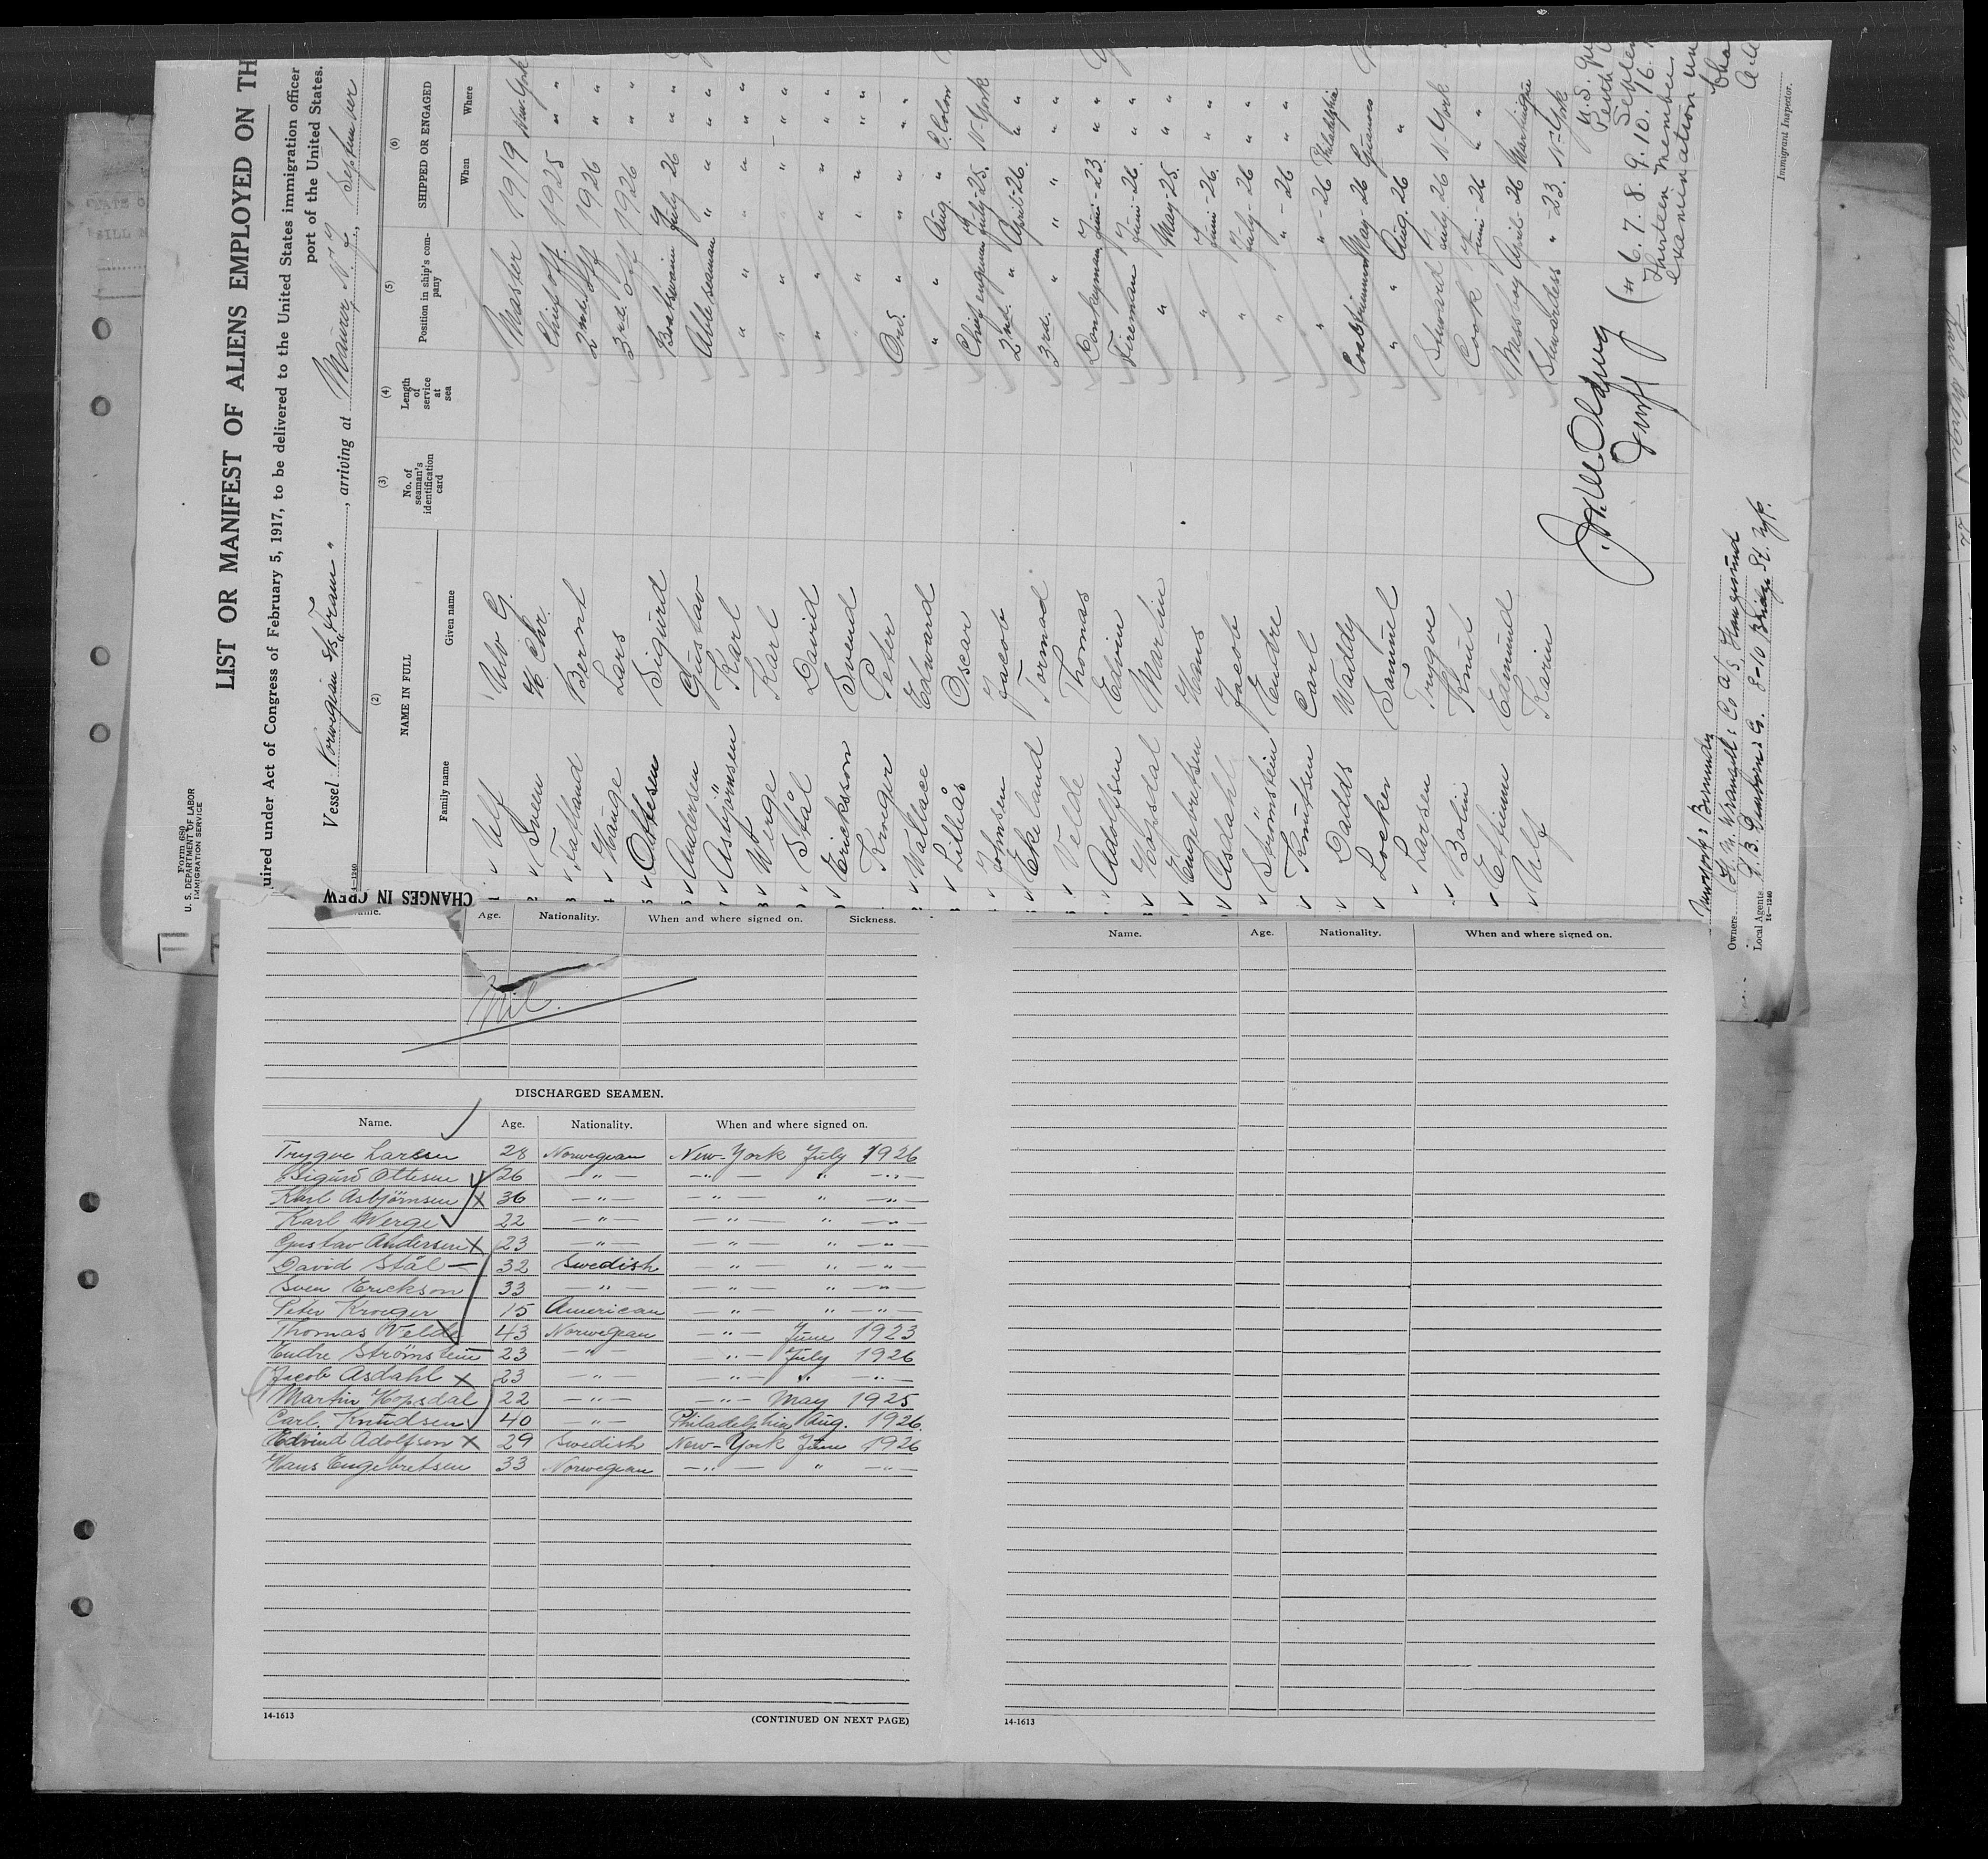 Form 680
U. S. DEPARTMENT OF LABOR
IMMIGRATION SERVICE
LIST OR MANIFEST OF ALIENS EMPLOYED ON TH
uired under Act of Congress of February 5, 1917, to be delivered to the United States immigration officer
port of the United States.
Vessel Norwegian S/S "Fram", arriving at Maurer N. Y., September
14—1240
(2) (3) (4) (5) (6)
NAME IN FULL No. of seaman's identification card Length of service at sea Position in ship's company SHIPPED OR ENGAGED
Family name Given name When Where
1 Ulf Ulv G. Master 1919 New-York
2 Sveen H. Chr. Chief off. 1925 " "
3 Tatland Bernt 2nd. Off 1926 " "
4 Hauge Lars 3rd. Off 1926 " "
Ottesen Sigurd Boatswain July 26 " "
Andersen Gustav Able seaman " " " "
Asbjörnsen Karl " " " " " "
Werge Karl " " " " " "
Stål David " " " " " "
Ericksson Svend " " " " " "
Kroeger Peter Ord. " " " "
Wallace Edward " " Aug. " C. Colon
Lillås Oscar Chief engineer July-25. N-York
Johnsen Jacob 2nd. " April-26. " "
Ekeland Tormod 3rd. " " " " "
Velde Thomas Donkeyman Juni-23. " "
Adolfsen Edvin Fireman Juni-26. " "
Hopsdal Martin " May-25. " "
Engebretsen Hans " Juni-26. " "
Asdahl Jacob " July-26 " "
Strömstein Endre " " - 26 " "
Knutsen Carl " " - 26 Philadelphia
Dadds Waddy Coaltrimmer May-26
Locker Samuel " " Aug. 26 "
Larsen Trygve Steward July 26 N-York
Bolin Knut Cook Juni-26 " "
Ettienne Edmund Messboy April-26 Martinique
Ulf Karin Stewardess " -23. N-York
(# 6. 7. 8. 9. 10. 16.
Thirteen members
examination
Immigrant Inspector.
Owners
Local Agents 8-10 Bridge St. NY.
14—1240
CHANGES IN CREW
Name. Age. Nationality. When and where signed on. Sickness.
Nil.
DISCHARGED SEAMEN.
Name. Age. Nationality. When and where signed on.
Trygve Larsen 28 Norwegian New-York July 1926
Sigurd Ottesen 26 —"— —"— " —"—
Karl Asbjörnsen X 36 —"— —"— " —"—
Karl Werge 22 —"— —"— " —"—
Gustav Andersen X 23 —"— —"— " —"—
David Stål — 32 Swedish —"— " —"—
Sven Erickson 33 —"— —"— " —"—
Peter Kroeger 15 American —"— " —"—
Thomas Velde 43 Norwegian —"— June 1923
Endre Strömstein 23 —"— —"— July 1926
Jacob Asdahl X 23 —"— —"— " —"—
Martin Hopsdal 22 —"— —"— May 1925
Carl Knudsen 40 —"— Philadelphia Aug. 1926
Edvind Adolfson X 29 Swedish New-York June 1926
Hans Engebretsen 33 Norwegian —"— " —"—
14-1613 (CONTINUED ON NEXT PAGE)
Name. Age. Nationality. When and where signed on.
14-1613